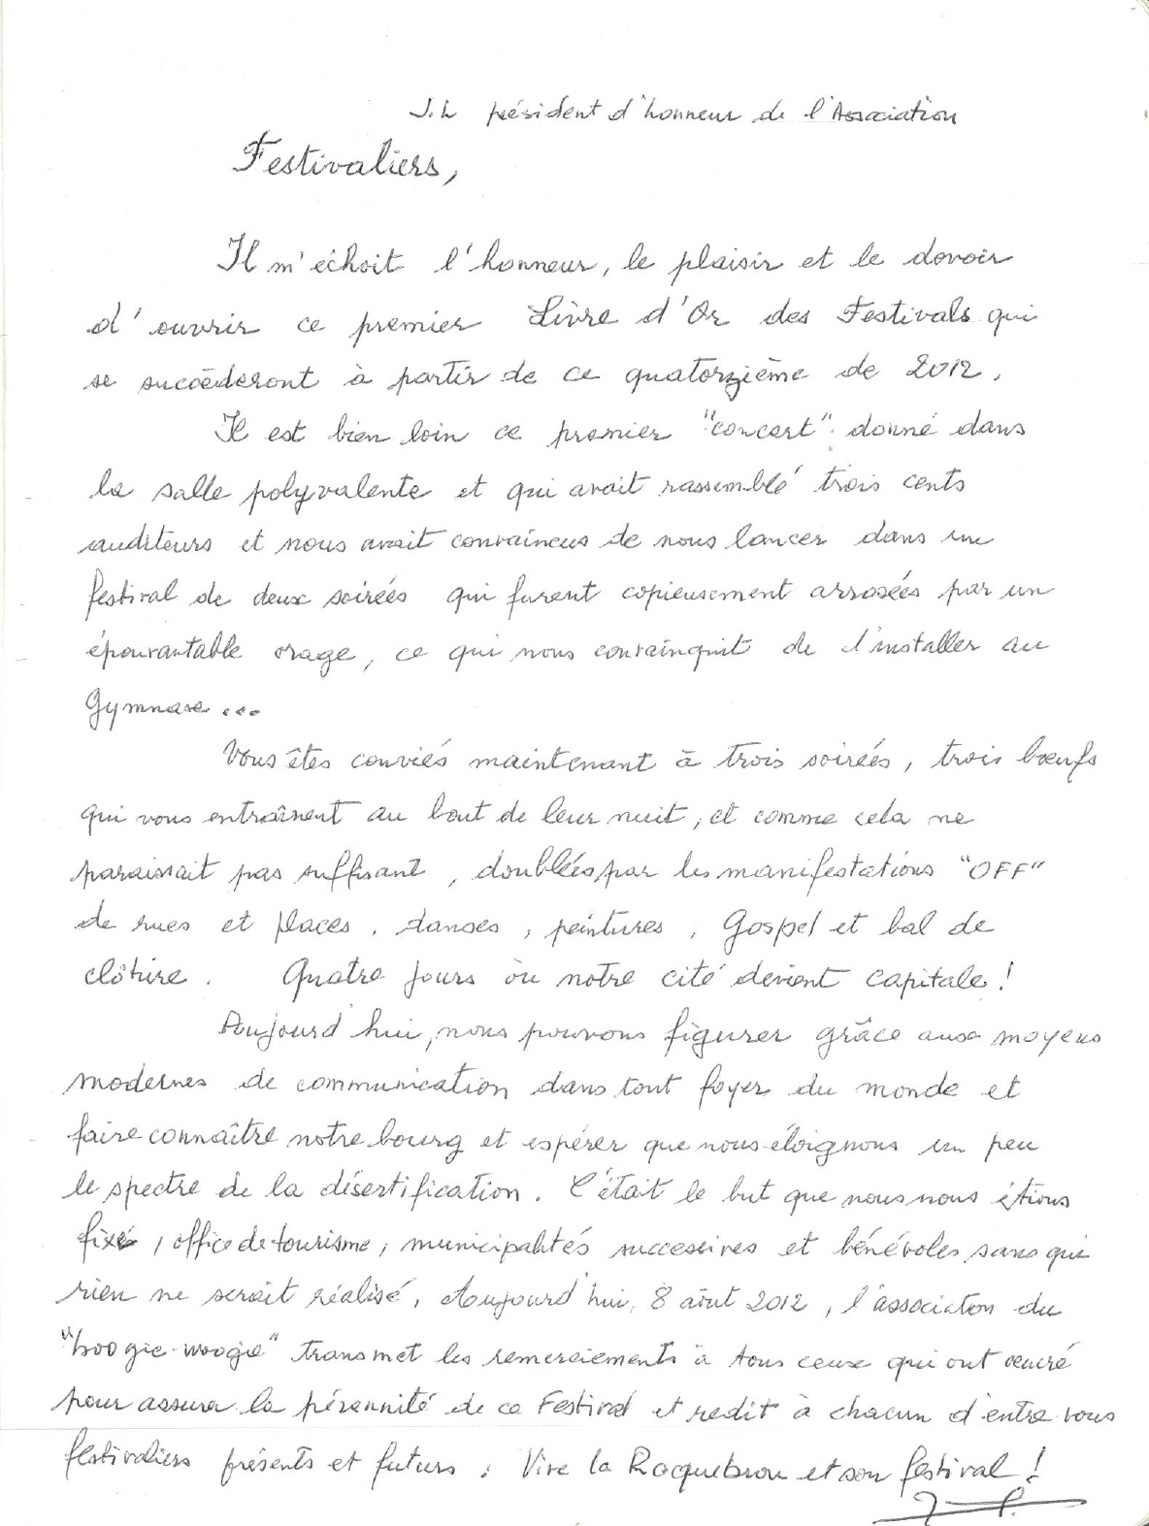 J.L président d'honneur de l'Association
Festivaliers,
Il m'échoit l'honneur, le plaisir et le devoir
d'ouvrir ce premier Livre d'Or des Festivals qui
se succèderont à partir de ce quatorzième de 2012.
Il est bien loin ce premier "concert" donné dans
la salle polyvalente et qui avait rassemblé trois cents
auditeurs et nous avait convaincus de nous lancer dans un
festival de deux soirées qui furent copieusement arrosées par un
épouvantable orage, ce qui nous convainquit de l'installer au
Gymnase...
Vous êtes conviés maintenant à trois soirées, trois bœufs
qui vous entraînent au bout de leur nuit, et comme cela ne
paraissait pas suffisant, doublées par les manifestations "OFF"
de rues et places, danses, peintures, Gospel et bal de
clôture. Quatre jours où notre cité devient capitale!
Aujourd'hui, nous pouvons figurer grâce aux moyens
modernes de communication dans tout foyer du monde et
faire connaître notre bourg et espérer que nous éloignons un peu
le spectre de la désertification. C'était le but que nous nous étions
fixé, office de tourisme, municipalités successives et bénévoles sans qui
rien ne serait réalisé, Aujourd'hui, 8 août 2012, l'association du
"boogie-woogie" transmet les remerciements à tous ceux qui ont œuvré
pour assurer la pérennité de ce Festival et redit à chacun d'entre vous
festivaliers présents et futurs : Vive la Roquebrou et son festival!